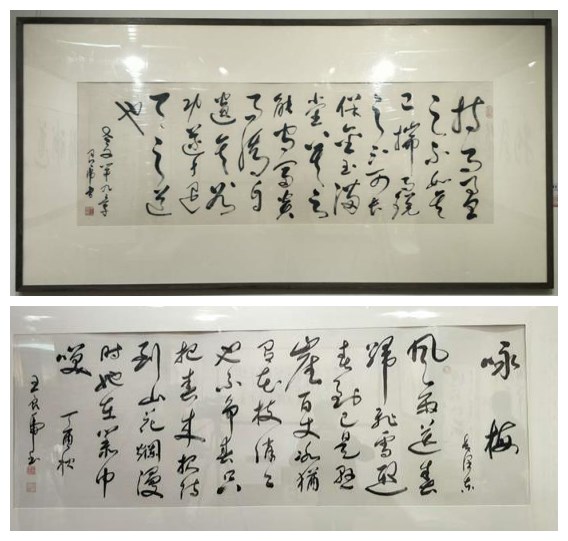 持而盈
之不如其
已揣而锐
之不可长
保金玉满
堂莫之
能守富贵
而骄自
遗其咎
功遂身退
天之道
也
老子第九章
良虎书
咏梅
毛泽东
风雨送春
归飞雪迎
春到已是悬
崖百丈冰犹
有花枝俏俏
也不争春只
把春来报待
到山花烂漫
时她在丛中
笑
丁酉秋
王良虎书